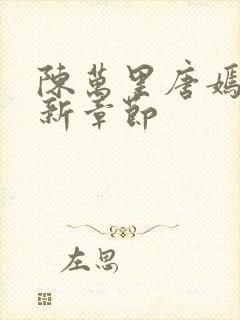 陳萬里唐嫣
新章節
左思